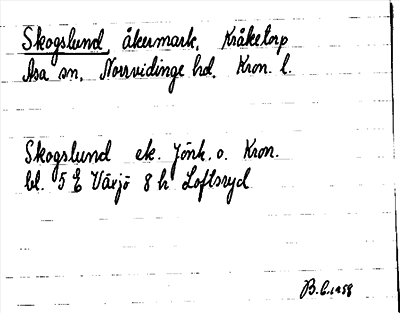 Skogslund, åkermark, Kråketorp
Asa sn, Norrvidinge hd. Kron. l.
Skogslund ek. Jönk. o. Kron.
bl. 5 E Växjö 8 h Loftsryd
B.E. 1958